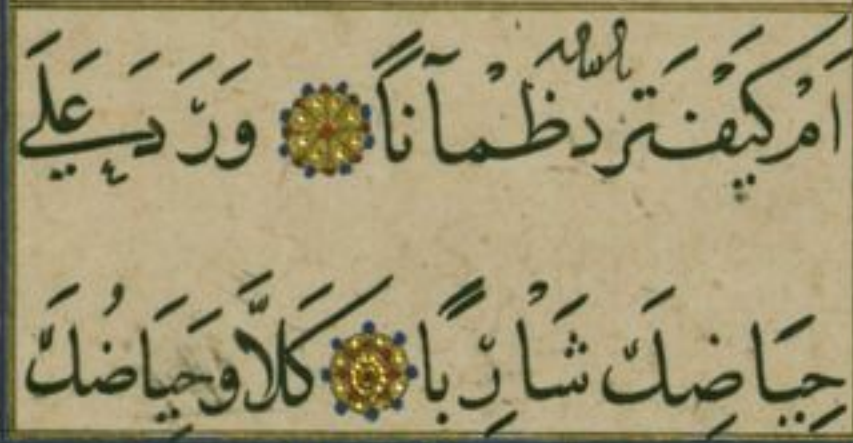 اَمْ كَيْفَ تَرد ظَمْآنًا وَرَدَ عَلَى
حِيَاضِكَ شَارِبًا كَلَّا وَحِيَاضُكَ